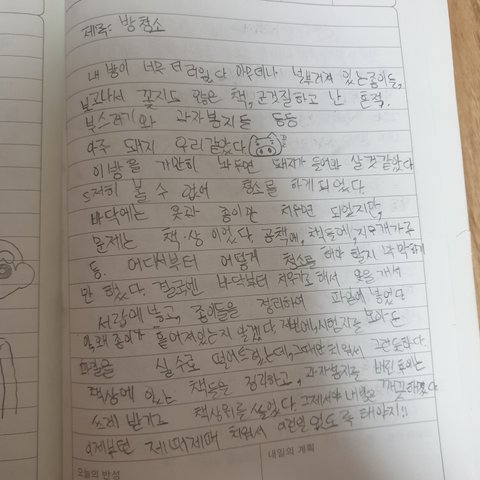 제목: 방청소
내 방이 너무 더러웠다 아무데나 널부러져 있는 종이들,
보고나서 꽂지도 않은 책, 군것질하고 난 흔적.
부스러기와 과자봉지들 등등
아주 돼지 우리같았다
이방을 가만히 놔두면 돼지가 들어와 살것같았다
도저히 볼 수 없어 청소를 하게되었다
바닥에는 옷과 종이만 치우면 되었지만,
문제는 책·상이었다. 공책에, 책들에, 지우개가루
등. 어디서부터 어떻게 청소를 해야 할지 막막하기
만 했다. 결국엔 바닥부터 치우기로 해서 옷을 개서
서랍에 넣고, 종이들을 정리하여 파일에 넣었다
왜 종이가 흩어져있는지 알겠다 저번에, 시험지를 모아둔
파일을 실수로 떨어트렸는데, 그때 안치워서 그런듯하다.
책상에 있는 책들을 정리하고, 과자봉지를 버린 후에는
쓰레받기고 책상위를 쓸었다. 그제서야 내방은 깨끗해졌다
이제부턴 제때제때 치워서 이런일 없도록 해야지!!
오늘의 반성
내일의 계획